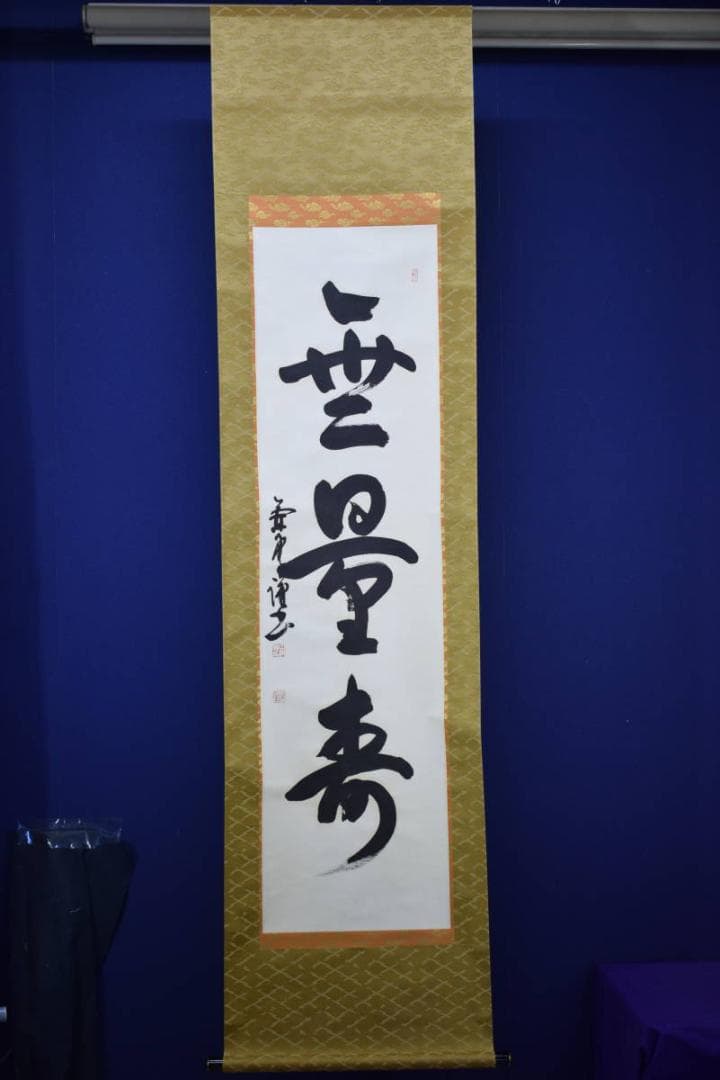 無量寿
謹書